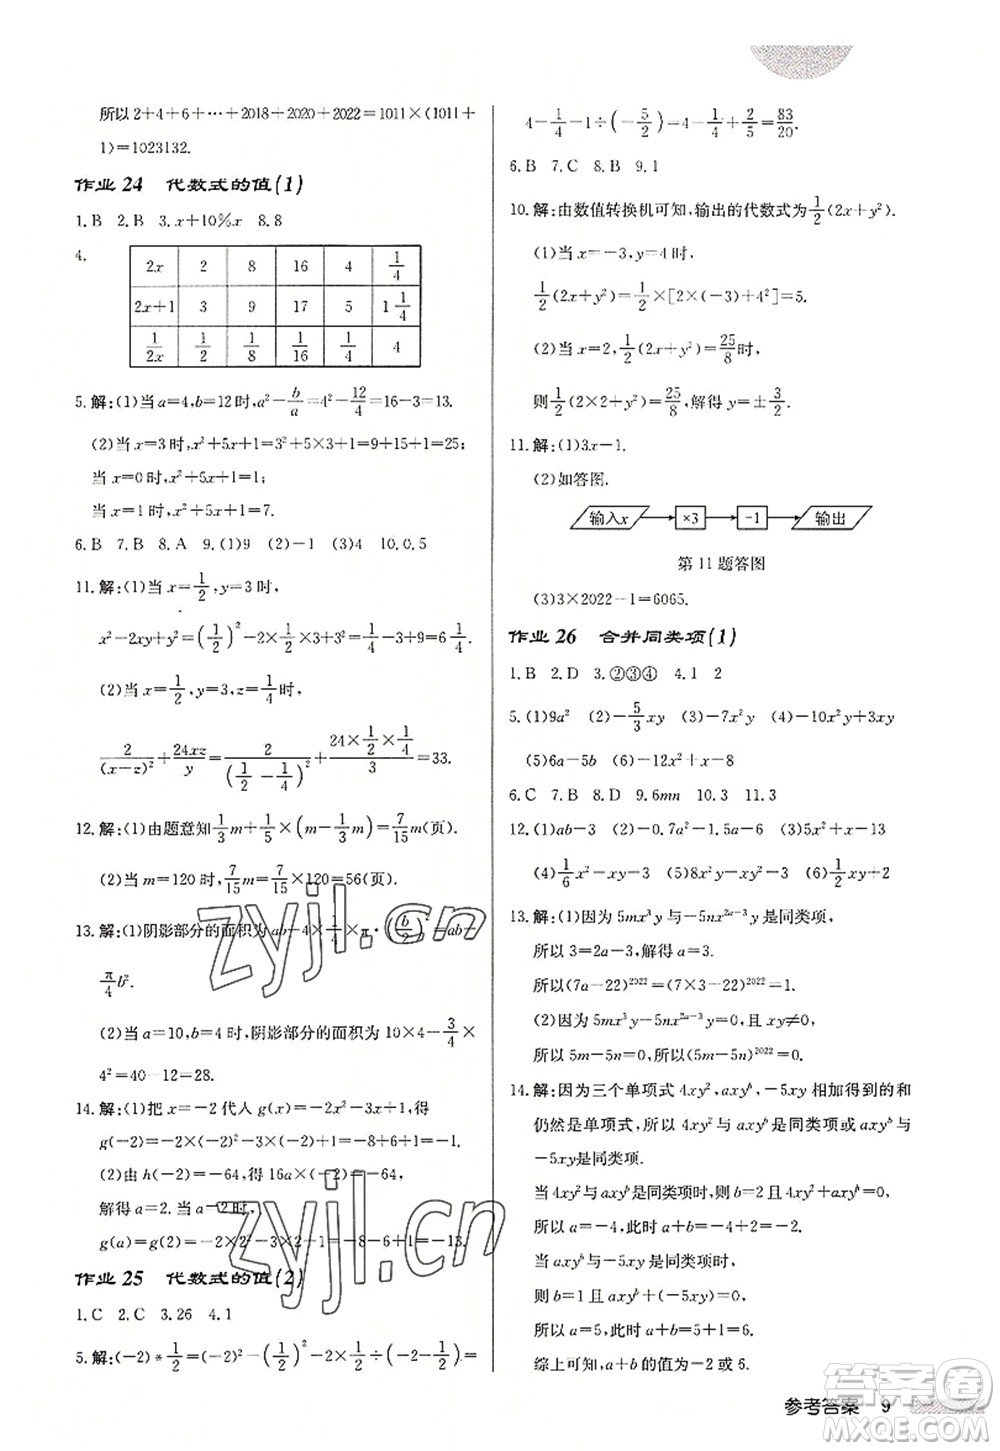 所以 2+4+6+…+2018+2020+2022=1011×(1011+
1)=1023132.
作业 24 代数式的值(1)
1.B 2.B 3.x+10%x 8.8
4.
2x 2 8 16 4 1/4
2x+1 3 9 17 5 1 1/4
1/2x 1/2 1/8 1/16 1/4 4
5.解:(1)当 a=4,b=12 时,a²-b/a=4²-12/4=16-3=13.
(2)当 x=3 时,x²+5x+1=3²+5×3+1=9+15+1=25;
当 x=0 时,x²+5x+1=1;
当 x=1 时,x²+5x+1=7.
6.B 7.B 8.A 9.(1)9 (2)-1 (3)4 10.0.5
11.解:(1)当 x=1/2,y=3 时,
x²-2xy+y²=(1/2)²-2×1/2×3+3²=25/4.
(2)当 x=1/2,y=3,z=1/4 时,
2/(x-z)²+24xz/y=2/(1/2-1/4)²+(24×1/2×1/4)/3=33.
12.解:(1)由题意知 1/3m+1/5×(m-1/3m)=7/15m(页).
(2)当 m=120 时,7/15m=7/15×120=56(页).
13.解:(1)阴影部分的面积为 ab-4×1/4×π·(b/2)²=ab-
π/4b².
(2)当 a=10,b=4 时,阴影部分的面积为 10×4-3/4×
4²=40-12=28.
14.解:(1)把 x=-2 代入 g(x)=-2x²-3x+1,得
g(-2)=-2×(-2)²-3×(-2)+1=-8+6+1=-1.
(2)由 h(-2)=-64,得 16a×(-2)=-64,
解得 a=2.当 a=2 时,
g(a)=g(2)=-2×2²-3×2+1=-8-6+1=-13.
作业 25 代数式的值(2)
1.C 2.C 3.26 4.1
5.解:(-2)*1/2=(-2)²-(1/2)²-2×1/2÷(-2-1/2)=
4-1/4-1÷(-5/2)=4-1/4+2/5=83/20.
6.B 7.C 8.B 9.1
10.解:由数值转换机可知,输出的代数式为1/2(2x+y²).
(1)当 x=-3,y=4 时,
1/2(2x+y²)=1/2×[2×(-3)+4²]=5.
(2)当 x=2,1/2(2x+y²)=25/8时,
则1/2(2×2+y²)=25/8,解得 y=±3/2.
11.解:(1)3x-1.
(2)如答图.
输入x ×3 -1 输出
第 11 题答图
(3)3×2022-1=6065.
作业 26 合并同类项(1)
1.B 2.D 3.②③④ 4.1 2
5.(1)9a² (2)-5/3xy (3)-7x²y (4)-10x²y+3xy
(5)6a-5b (6)-12x²+x-8
6.C 7.B 8.D 9.6mn 10.3 11.3
12.(1)ab-3 (2)-0.7a²-1.5a-6 (3)5x²+x-13
(4)1/6x²-8x-3 (5)-x²-2x+1 (6)1/2xy+2
13.解:(1)因为 5mx³y 与-5nx²ᵃ⁻³y 是同类项,
所以 3=2a-3,解得 a=3.
所以(7a-22)²⁰²²=(7×3-22)²⁰²²=1.
(2)因为 5mx³y-5nx²ᵃ⁻³y=0,且 xy≠0,
所以 5m-5n=0,所以(5m-5n)²⁰²²=0.
14.解:因为三个单项式 4xy²,axyᵇ,-5xy 相加得到的和
仍然是单项式,所以 4xy² 与 axyᵇ 是同类项或 axyᵇ 与
-5xy 是同类项.
当 4xy² 与 axyᵇ 是同类项时,则 b=2,4xy²+axyᵇ=0,
所以 a=-4,此时 a+b=-4+2=-2.
当 axyᵇ 与-5xy 是同类项时,
则 b=1,axyᵇ+(-5xy)=0,
所以 a=5,此时 a+b=5+1=6.
综上可知,a+b 的值为-2 或 6.
zyjl.cn
zyjl.cn
答案圈
MXQE.COM
参考答案 9